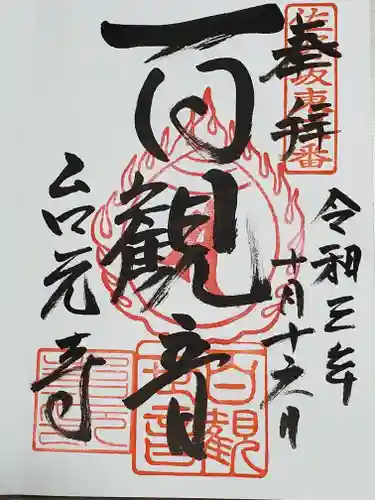 奉拝
令和三年
十月十六日
百観音
台元寺
百観音